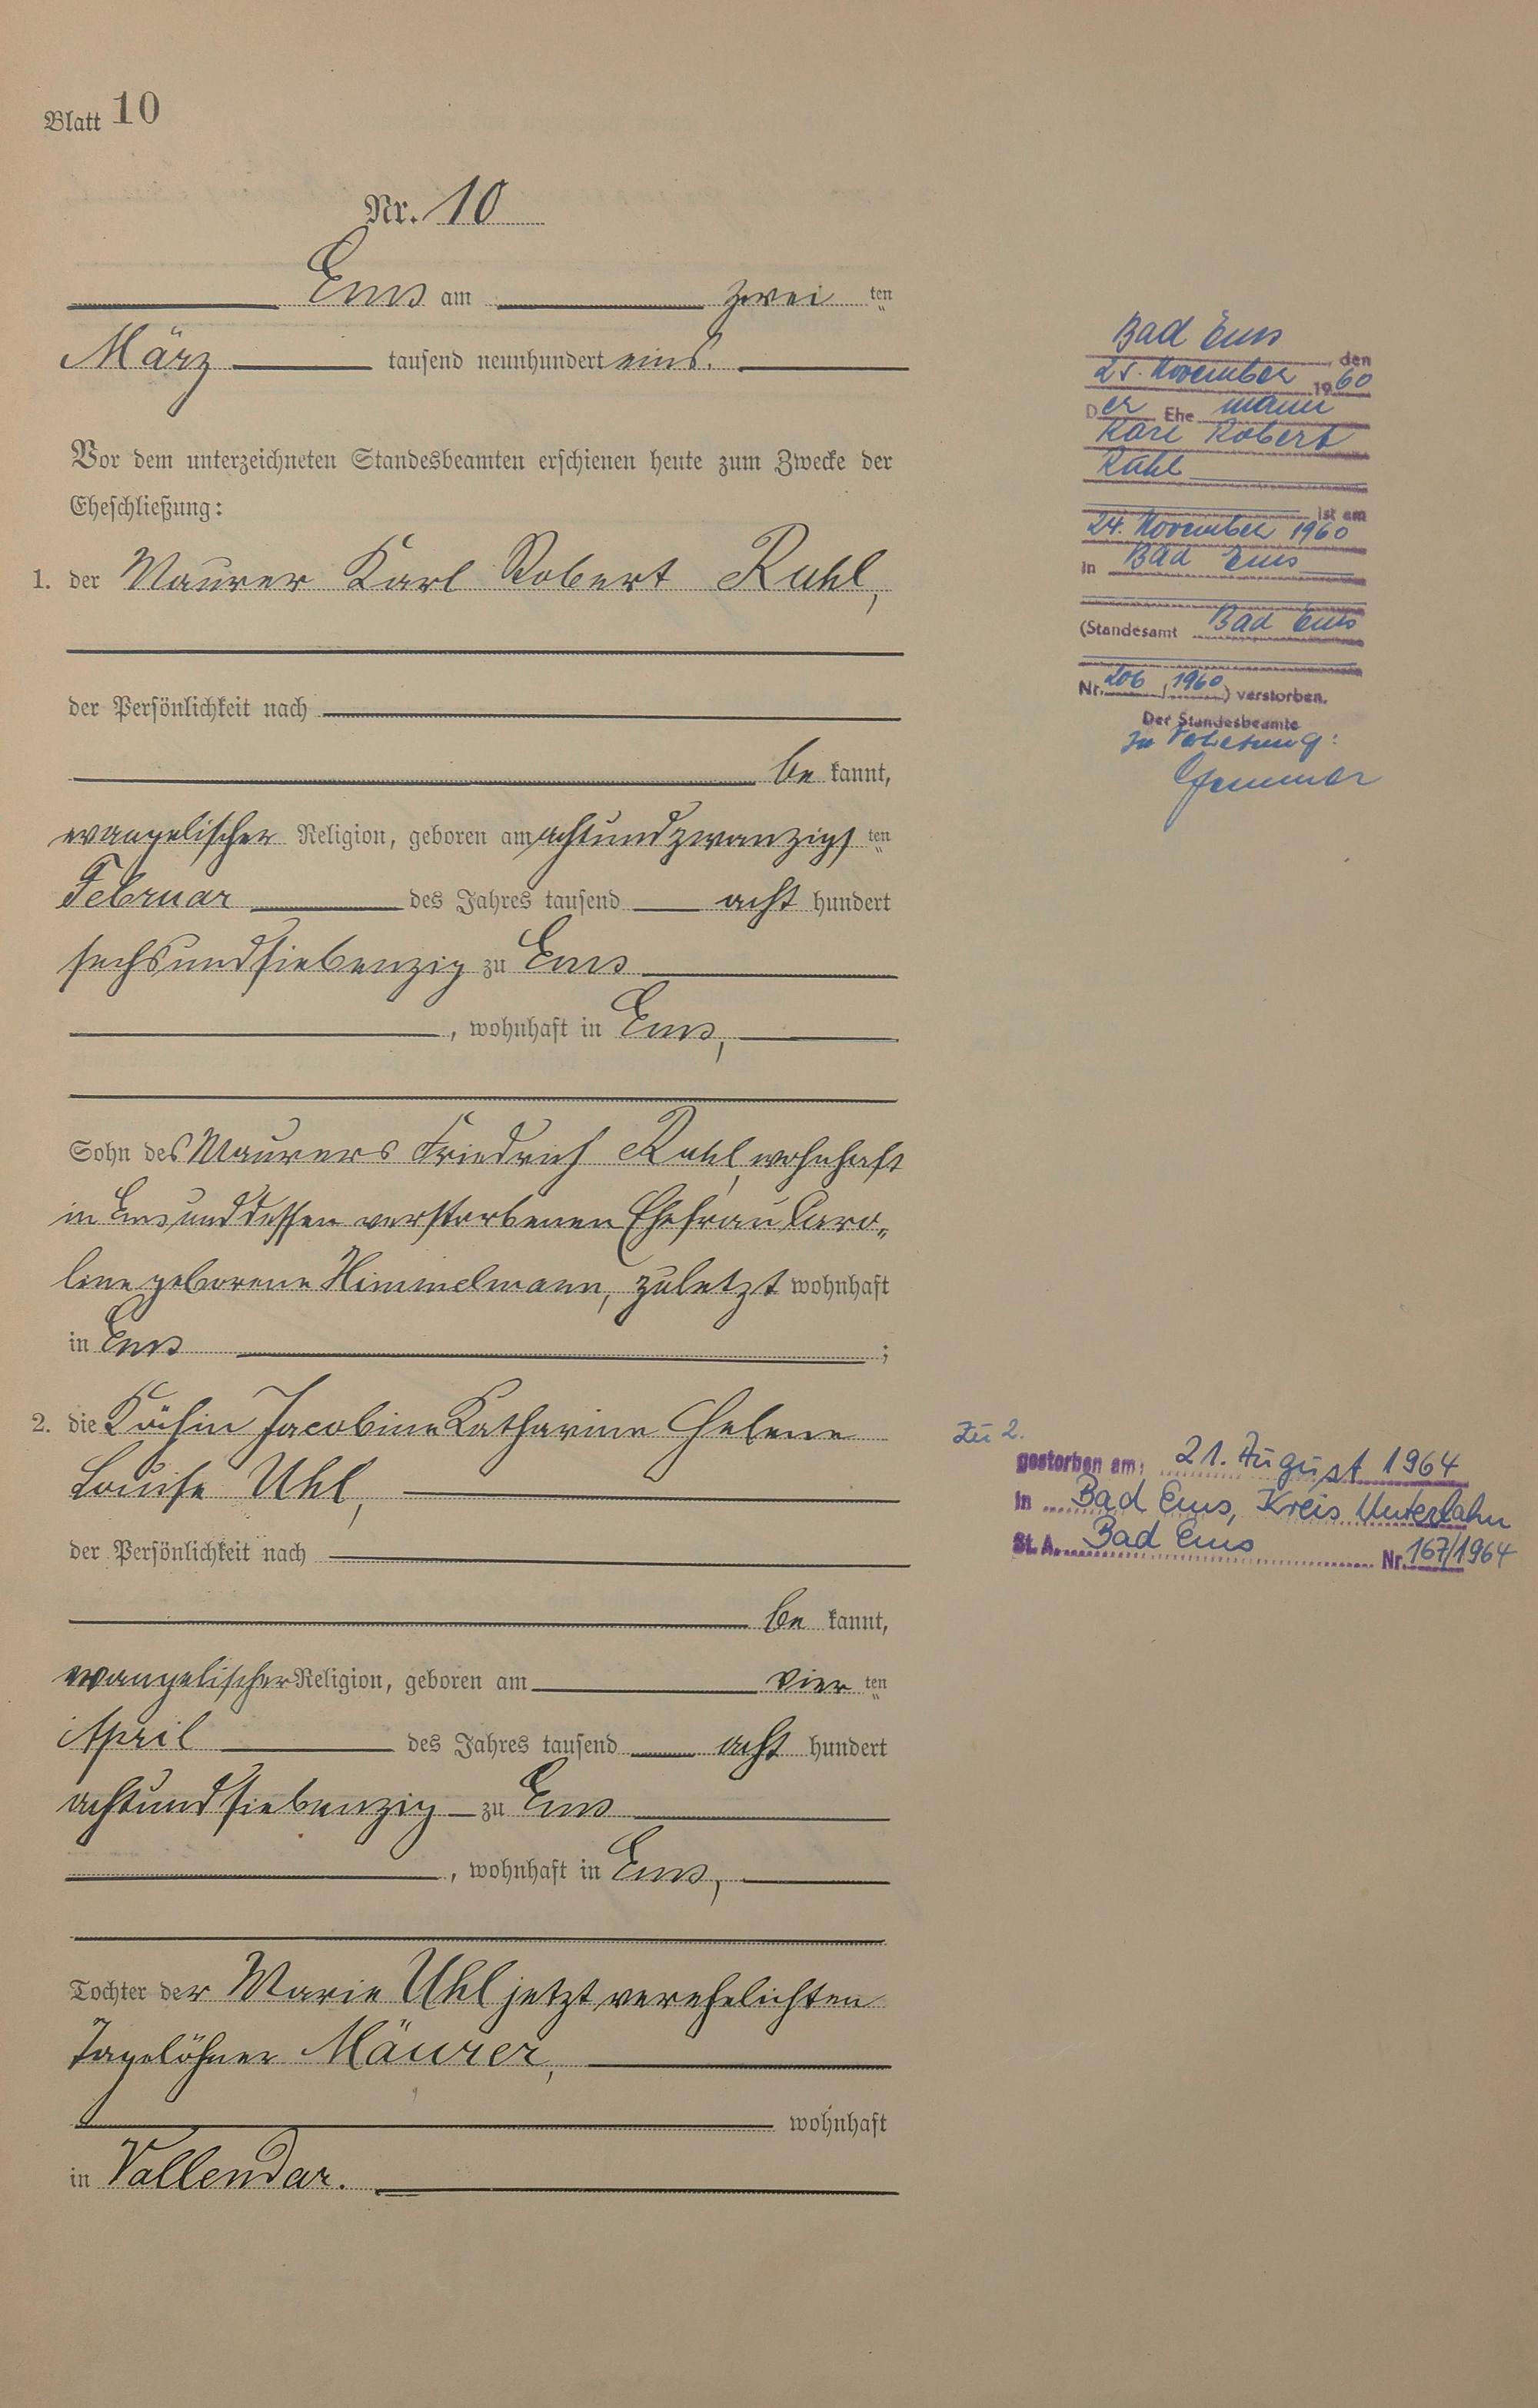 Blatt 10
Nr. 10
Ems am zwei ten
März tausend neunhundert eins.
Vor dem unterzeichneten Standesbeamten erschienen heute zum Zwecke der
Eheschließung:
1. der Maurer Karl Robert Ruhl,
der Persönlichkeit nach
be kannt,
evangelischer Religion, geboren am achtundzwanzigs ten
Februar des Jahres tausend acht hundert
sechsundsiebenzig zu Ems
, wohnhaft in Ems,
Sohn des Maurers Friedrich Ruhl, wohnhaft
in Ems und dessen verstorbenen Ehefrau Caro„
line geborene Himmelmann, zuletzt wohnhaft
in Ems ;
2. die Köchin Jacobine Katharine Helene
Louise Uhl,
der Persönlichkeit nach
be kannt,
evangelischer Religion, geboren am vier ten
April des Jahres tausend acht hundert
achtundsiebenzig zu Ems
, wohnhaft in Ems,
Tochter der Marie Uhl jetzt verehelichten
Tagelöhner Mäurer,
wohnhaft
in Vallendar.
Bad Ems
, den
25. November 1960
Der Ehe mann
Karl Robert
Ruhl
ist am
24. November 1960
in Bad Ems
(Standesamt Bad Ems
Nr. 206 / 1960 ) verstorben.
Der Standesbeamte
In Vertretung:
Zu 2.
gestorben am: 21. August 1964
in Bad Ems, Kreis Unterlahn
St. A. Bad Ems Nr. 167/1964